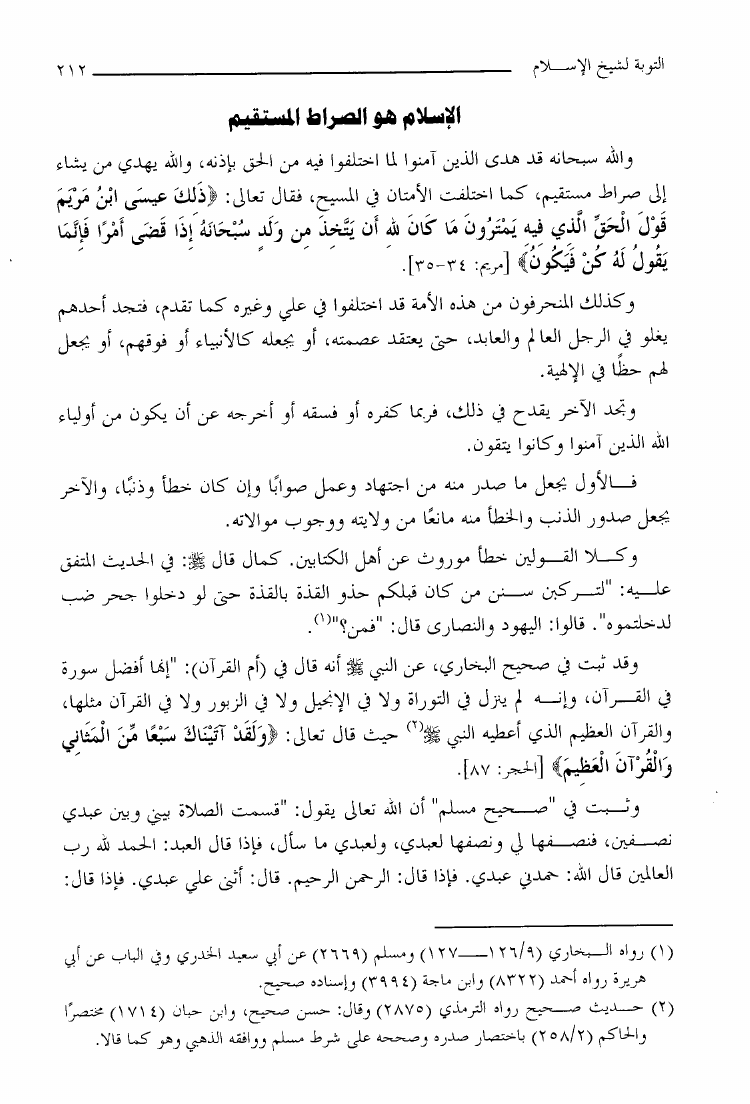 التوبة لشيخ الإســلام ٢١٢
الإسلام هو الصراط المستقيم
والله سبحانه قد هدى الذين آمنوا لما اختلفوا فيه من الحق بإذنه، والله يهدي من يشاء
إلى صراط مستقيم، كما اختلفت الأمتان في المسيح، فقال تعالى: ﴿ذَلِكَ عِيسَى ابْنُ مَرْيَمَ
قَوْلَ الْحَقِّ الَّذِي فِيهِ يَمْتَرُونَ مَا كَانَ لِلَّهِ أَن يَتَّخِذَ مِن وَلَدٍ سُبْحَانَهُ إِذَا قَضَى أَمْرًا فَإِنَّمَا
يَقُولُ لَهُ كُنْ فَيَكُونُ﴾ [مريم: ٣٤-٣٥].
وكذلك المنحرفون من هذه الأمة قد اختلفوا في علي وغيره كما تقدم، فتجد أحدهم
يغلو في الرجل العالم والعابد، حتى يعتقد عصمته، أو يجعله كالأنبياء أو فوقهم، أو يجعل
لهم حظًا في الإلهية.
وتجد الآخر يقدح في ذلك، فربما كفره أو فسقه أو أخرجه عن أن يكون من أولياء
الله الذين آمنوا وكانوا يتقون.
فــالأول يجعل ما صدر منه من اجتهاد وعمل صوابًا وإن كان خطأ وذنبًا، والآخر
يجعل صدور الذنب والخطأ منه مانعًا من ولايته ووجوب موالاته.
وكــلا القــولين خطأ موروث عن أهل الكتابين. كمال قال ﷺ: في الحديث المتفق
علــيه: "لتــركبن ســنن من كان قبلكم حذو القذة بالقذة حتى لو دخلوا جحر ضب
لدخلتموه". قالوا: اليهود والنصارى قال: "فمن؟"(١).
وقد ثبت في صحيح البخاري، عن النبي ﷺ أنه قال في (أم القرآن): "إنها أفضل سورة
في القــرآن، وإنــه لم ينزل في التوراة ولا في الإنجيل ولا في الزبور ولا في القرآن مثلها،
والقرآن العظيم الذي أعطيه النبي ﷺ(٢) حيث قال تعالى: ﴿وَلَقَدْ آتَيْنَاكَ سَبْعًا مِّنَ الْمَثَانِي
وَالْقُرْآنَ الْعَظِيمَ﴾ [الحجر: ٨٧].
وثــبت في "صــحيح مسلم" أن الله تعالى يقول: "قسمت الصلاة بيني وبين عبدي
نصــفين، فنصــفها لي ونصفها لعبدي، ولعبدي ما سأل، فإذا قال العبد: الحمد لله رب
العالمين قال الله: حمدني عبدي. فإذا قال: الرحمن الرحيم. قال: أثنى علي عبدي. فإذا قال:
(١) رواه الــبخاري (١٢٦/٩ــ١٢٧) ومسلم (٢٦٦٩) عن أبي سعيد الخدري وفي الباب عن أبي
هريرة رواه أحمد (٨٣٢٢) وابن ماجة (٣٩٩٤) وإسناده صحيح.
(٢) حــديث صــحيح رواه الترمذي (٢٨٧٥) وقال: حسن صحيح، وابن حبان (١٧١٤) مختصرًا
والحاكم (٢٥٨/٢) باختصار صدره وصححه على شرط مسلم ووافقه الذهبي وهو كما قالا.